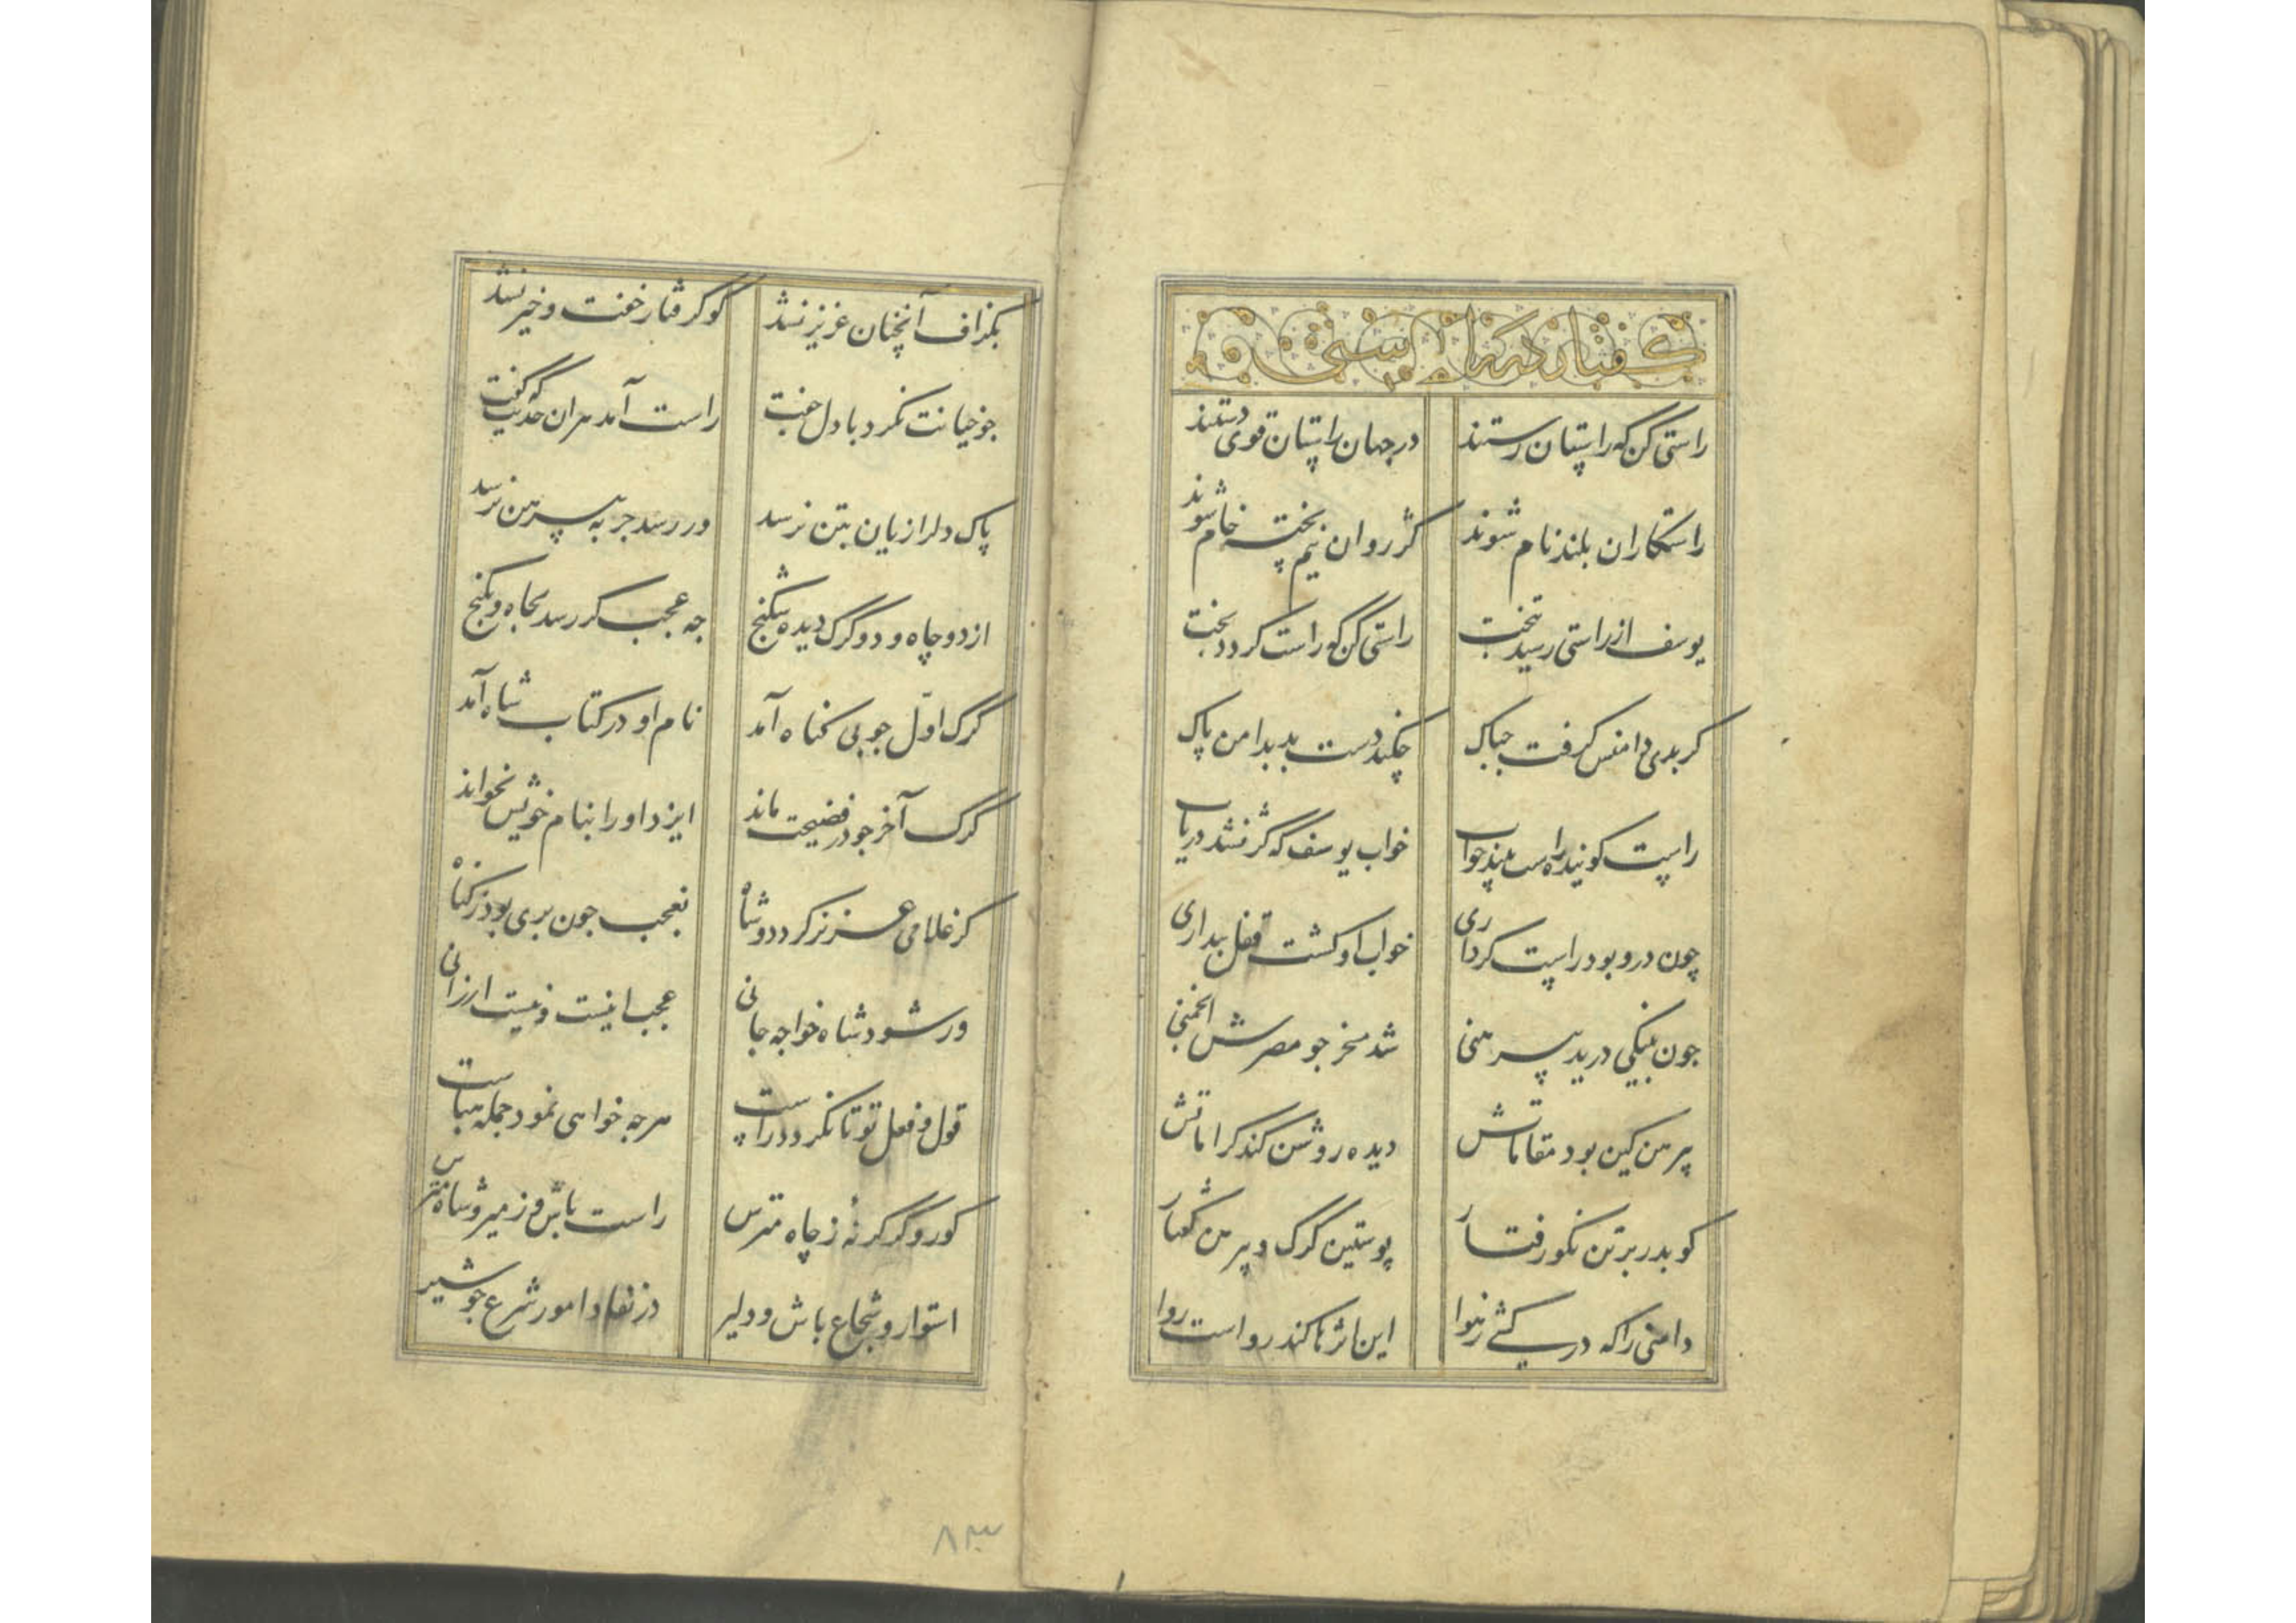 گفتار در راستی
راستی کن که راستان رستند در جهان راستان قوی دستند
راستکاران بلند نام شوند کژروان نیم پخته خام شوند
یوسف از راستی رسید بتخت راستی کن که راست کردد بخت
کر بدی دامنش کرفت جباک چکند دست بد بدامن پاک
راست کوینده راست بیند خواب خواب یوسف که کژ نشد دریاب
چون درو بود راست کرداری خواب او کشت قفل بیداری
جون بنیکی درید پیرهنی شد مسخر جو مصرش انجمنی
پیرهن کین بود مقاماتش دیده روشن کند کراماتش
کو بدر بر تن نکو رفتار پوستین گرگ و پیرهن کفتار
دامنی را که در کشی ز هوا این اثرها کند رواست روا
بکزاف آنچنان عزیز نشد کو کرفتار خفت و خیز نشد
جو خیانت نکرد با دل جفت راست آمد هر ان حدیث که گفت
پاک دل را زیان بتن نرسد ور رسد جز به پیرهن نرسد
از دو چاه و دو گرگ دیده شکنج جه عجب کر رسد بجاه و بکنج
گرگ اول جو بی کناه آمد نام او در کتاب شاه آمد
گرگ آخر جو در فضیحت ماند ایزد او را بنام خویش نخواند
کر غلامی عزیز کردد و شاه نعجب جون بری بود ز کناه
ور شود شاه خواجه جانی عجب اینست و نیست ارزانی
قول و فعل تو تا نکردد راست هرجه خواهی نمود جمله هباست
کور و گر گرنهٔ ز چاه مترس راست باش و ز میر و شاه مترس
استوار و شجاع باش و دلیر در نفاد امور شرع جو شیر
۸۳